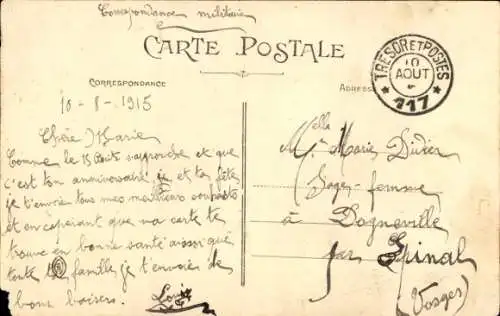 Correspondance militaire
CARTE POSTALE
CORRESPONDANCE
ADRESSE
TRESOR ET POSTES
10
AOUT
* 117 *
10-8-1915
Chère Marie
Comme le 15 Août rapproche et que
c'est ton anniversaire et ta fête
je t'envoie tous mes meilleurs souhaits
et en espérant que ma carte te
trouve en bonne santé ainsi que
toute ta famille je t'envoies de
bons baisers. Louis
Melle Marie Didier
Sage-femme
à Dogneville
par Epinal
(Vosges)